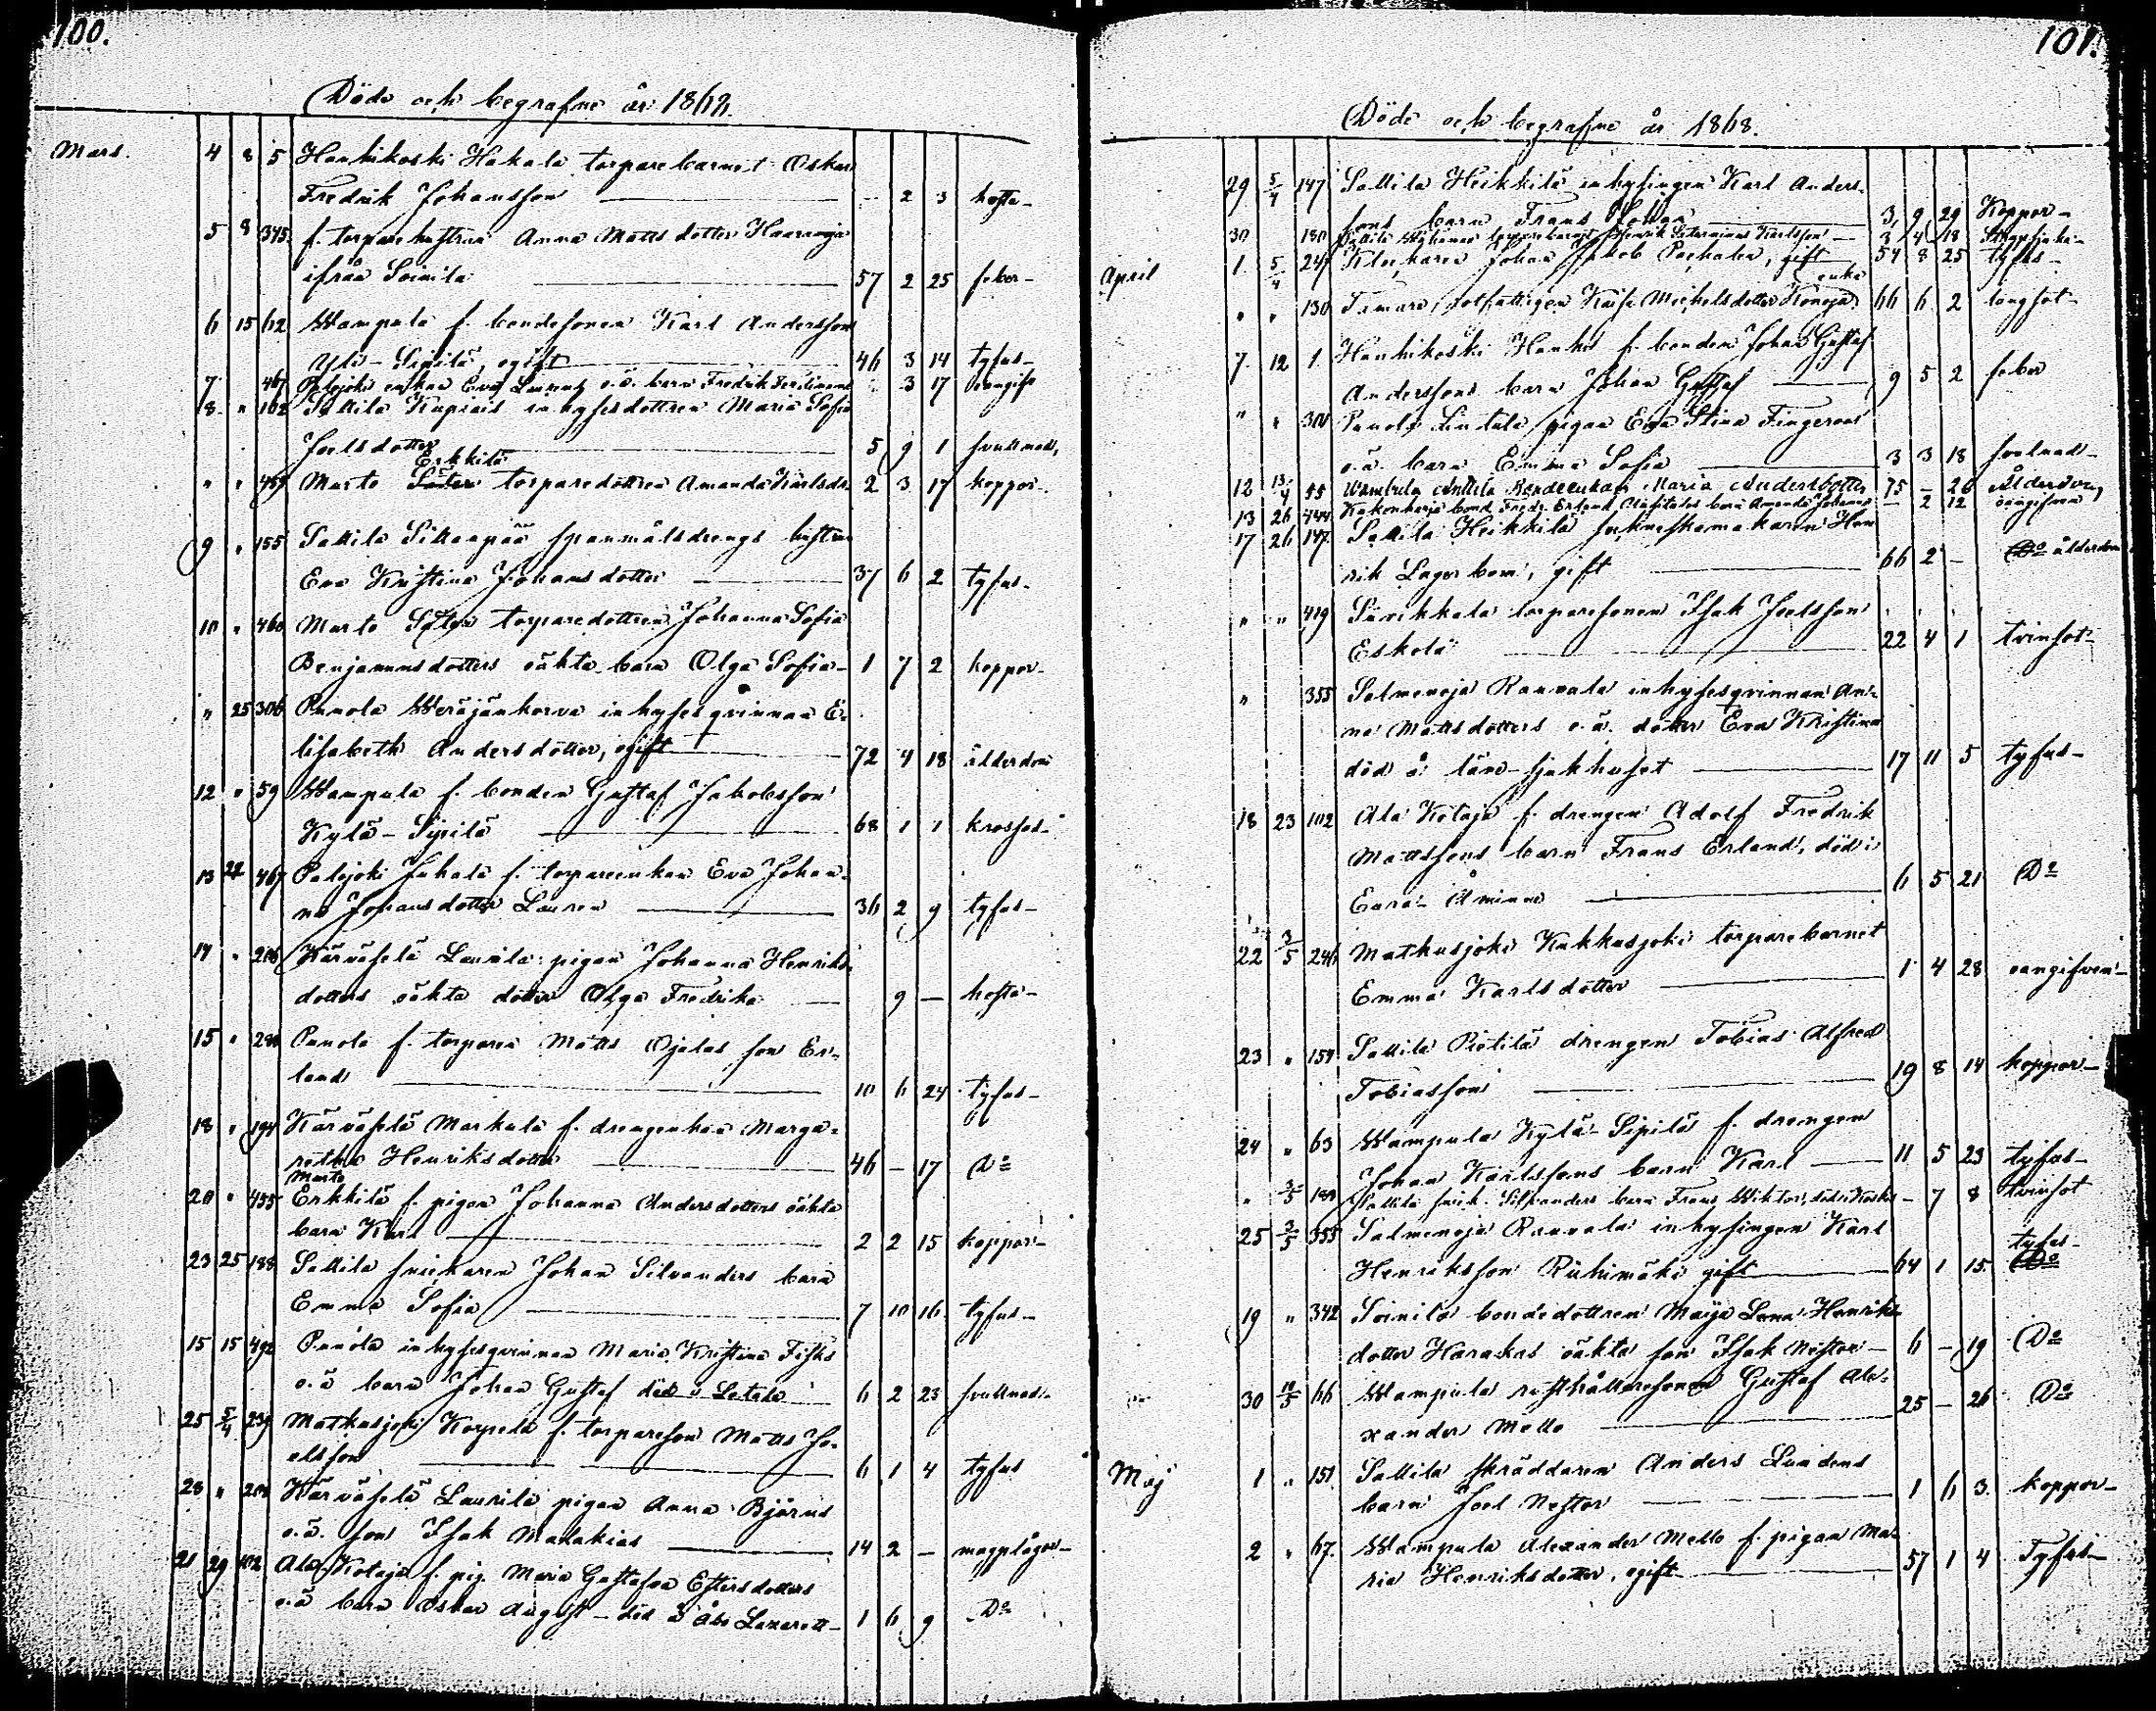 100.
Döde och begrafne år 1868.
Mars. 4 8 5 Hanhikoski Hakala torparebarnet Oskar
Fredrik Johansson — 2 3 hosta-
5 8 345 f. torparehustrun Anna Mattsdotter Haaroja
ifrån Soinila — 57 2 25 feber-
6 15 62 Wampula f. bondesonen Karl Andersson
Yli-Sipilä, ogift — 46 3 14 tyfus-
7 467 Palojoki enkan Eva Laurens o.ä. barn Fredrik Ferdinand 3 17 oangifv
8 " 102 Sallila Kupiais inhysesdottren Maria Sofia
Joelsdotter — 5 9 1 svullnad,
" " 459 Murto Erkkilä torparedottren Amanda Karlsdr. 2 3 17 koppor-
9 " 155 Sallila Sillanpää spanmålsdrengs hustrun
Eva Kristina Johansdotter — 37 6 2 tyfus-
10 " 460 Murto Säter torparedottren Johanna Sofia
Benjaminsdotters oäkta barn Olga Sofia- 1 7 2 koppor-
" 25 306 Punola Weräjänkorva inhysesqvinnan E-
lisabeth Andersdotter, ogift — 72 4 18 ålderdom
12 " 59 Wampula f. bonden Gustaf Jakobsson
Kylä-Sipilä — 68 1 1 brosjuk-
13 22 467 Palojoki Juhala f. torpareenkan Eva Johan-
na Johansdotter Lauren — 36 2 9 tyfus-
14 " 206 Kärväselä Laurila pigan Johanna Henriks-
dotters oäkta dotter Olga Fredrika — 9 — hosta-
15 " 280 Punola f. torparen Matts Ojalas son Er-
land — 10 6 24 tyfus-
18 " 194 Kärväselä Markula f. drengenkan Marga-
retha Henriksdotter — 46 — 17 Do
20 " 455 Murto Erkkilä f. pigan Johanna Andersdotters oäkta
barn Karl — 2 2 15 koppor-
23 25 188 Sallila snickaren Johan Silvanders barn
Emma Sofia — 7 10 16 tyfus-
15 15 492 Punola inhysesqvinnan Maria Kristina Fisks
o.ä barn Johan Gustaf död i Letala 6 2 23 svullnad-
25 5/4 239 Matkusjoki Korpela f. torpareson Matts Jo-
elsson — 6 1 4 tyfus
28 " 200 Kärväselä Laurila pigan Anna Björns
o.ä. son Isak Malakias — 14 2 — magplågor-
21 29 102 Ala-Kotaja f. pig. Maria Gustafva Estersdotters
o.ä barn Oskar August - död å Åbo Lazarett- 1 6 9 Do
101.
Döde och begrafne år 1868.
29 5/4 147 Sallila Heikkilä inhysingen Karl Anders-
sons barn Frans — 3 9 29 Koppor-
30 180 Sallila torparebarnet Henrik Karlsson — 3 4 18
April 1 5/4 247 Klockaren Johan Jakob Pockala, gift 54 8 25 tyfus-
" " 130 Tamare, rotfattigen enka Kaisa Michelsdotter Konoja 66 6 2 lungsot-
7 12 1 Hanhikoski Hanhi f. bonden Johan Gustaf
Anderssons barn Johan Gustaf — 9 5 2 feber
" " 300 Punola Lintula pigan Eva Stina Fingeroos
o.ä. barn Emma Sofia — 3 3 18 svulnad-
12 13/4 55 Wambula Anttila Bondeenkan Maria Andersdotter 75 — 26 Åldersvag
13 26 444 Kukonharja bond. Fredr. Erland barn Amanda Johanna — 2 12 oangifven
17 26 147 Sallila Heikkilä sockneskomakaren Hen
rik Lagerbom, gift — 66 2 — Do ålderdom
" " 419 Suvikkala torparesonen Isak Joelsson
Eskola — 22 4 1 tvinsot-
" 355 Salmenoja Rauvala inhysesqvinnan An-
na Mattsdotters o.ä. dotter Eva Kristina
död å läns-sjukhuset — 17 11 5 tyfus-
18 23 102 Ala Kotaja f. drengen Adolf Fredrik
Mattssons barn Frans Erland, död i
Eura Åminne — 6 5 21 Do
22 3/5 246 Matkusjoki Kukkusjoki torparebarnet
Emma Karlsdotter — 1 4 28 oangifven-
23 " 154 Sallila Pietilä drengen Tobias Alfred
Tobiasson — 19 8 14 koppor-
24 " 63 Wampula Kylä-Sipilä f. drengen
Johan Karlssons barn Karl — 11 5 23 tyfus-
" 3/5 188 Sallila snick. Silvanders barn Frans Wiktor, död i Koski — 7 8 tvinsot
25 3/5 355 Salmenoja Rauvala inhysingen Karl
Henriksson Riihimäki gift — 64 1 15 tyfus- Do
19 " 342 Soinila bondedottren Maija Lena Henriks-
dotter Harakas oäkta son Isak Nestor — 6 — 19 Do
30 10/5 66 Wampula rusthållaresonen Gustaf Ale-
xander Mello — 25 — 26 Do
Maj 1 " 151 Sallila skräddaren Anders Lundens
barn Joel Nestor — 1 6 3 koppor-
2 " 67 Wampula Alexander Mello f. pigan Ma-
ria Henriksdotter, ogift — 57 1 4 Tyfus-